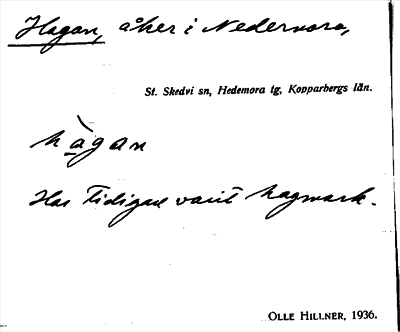 Hagan, åker i Nedernora,
St. Skedvi sn, Hedemora tg, Kopparbergs län.
hàgan
Har tidigare varit hagmark.
OLLE HILLNER, 1936.